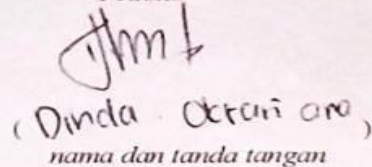 (Dinda Oktariana)
nama dan tanda tangan